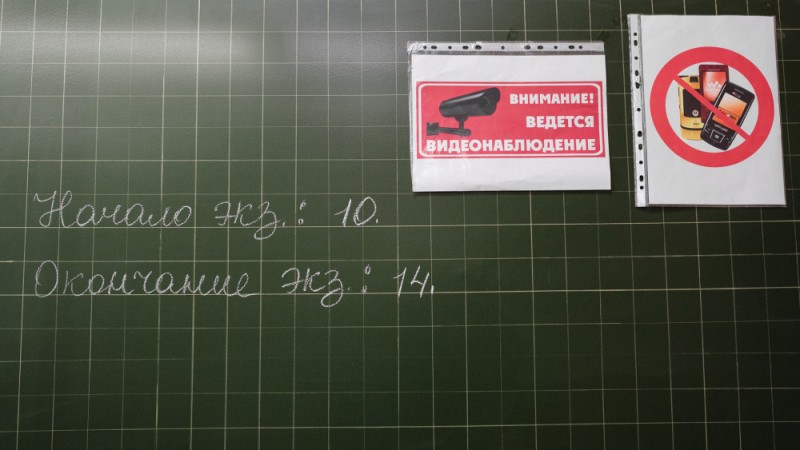 ВНИМАНИЕ!
ВЕДЕТСЯ
ВИДЕОНАБЛЮДЕНИЕ
Начало экз.: 10.
Окончание экз.: 14.